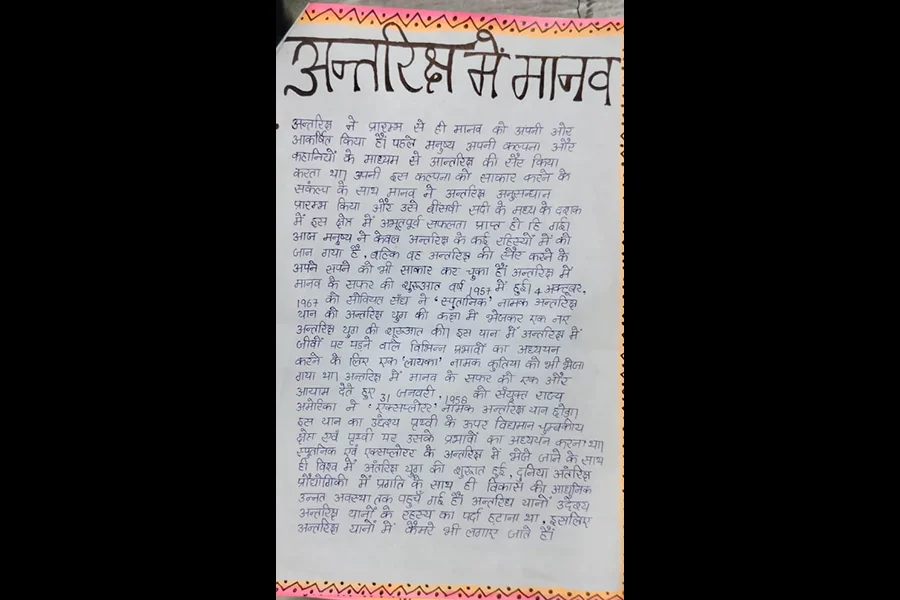 अन्तरिक्ष में मानव
अन्तरिक्ष ने प्रारम्भ से ही मानव को अपनी ओर
आकर्षित किया है। पहले मनुष्य अपनी कल्पना और
कहानियों के माध्यम से आन्तरिक्ष की सैर किया
करता था। अपनी इस कल्पना को साकार करने के
संकल्प के साथ मानव ने अन्तरिक्ष अनुसन्धान
प्रारम्भ किया और उसे बीसवी सदी के मध्य के दशक
में इस क्षेत्र में अभूतपूर्व सफलता प्राप्त हो हि गई।
आज मनुष्य ने केवल अन्तरिक्ष के कई रहस्यों में को
जान गया है, बल्कि वह अन्तरिक्ष की सैर करने के
अपने सपने को भी साकार कर चुका है। अन्तरिक्ष में
मानव के सफर की शुरूआत वर्ष 1957 में हुई। 4 अक्टूबर,
1967 को सोवियत संघ ने 'स्पुतानिक' नामक अन्तरिक्ष
यान को अन्तरिक्ष युग की कक्षा में भेजकर एक नए
अन्तरिक्ष युग की शुरूआत की। इस यान में अन्तरिक्ष में
जीवों पर पड़ने वाले विभिन्न प्रभावों का अध्ययन
करने के लिए एक 'लायका' नामक कुतिया को भी भेजा
गया था। अन्तरिक्ष में मानव के सफर को एक और
आयाम देते हुए 31 जनवरी, 1958 को संयुक्त राज्य
अमेरिका ने 'एक्सप्लोरर' नामक अन्तरिक्ष यान छोड़ा।
इस यान का उद्देश्य पृथ्वी के ऊपर विद्यमान चुम्बकीय
क्षेत्र एवं पृथ्वी पर उसके प्रभावों का अध्ययन करना था।
स्पुतनिक एवं एक्सप्लोरर के अन्तरिक्ष में भेजे जाने के साथ
ही विश्व में अंतरिक्ष युग की शुरुरात हुई, दुनिया अंतरिक्ष
प्रौद्योगिकी में प्रगति के साथ ही विकास की आधुनिक
उन्नत अवस्था तक पहुचँ गई है। अन्तरिक्ष यानों उद्देश्य
अन्तरिक्ष यानों के रहस्य का पर्दा हटाना था, इसलिए
अन्तरिक्ष यानों में कैमरे भी लगाए जाते है।